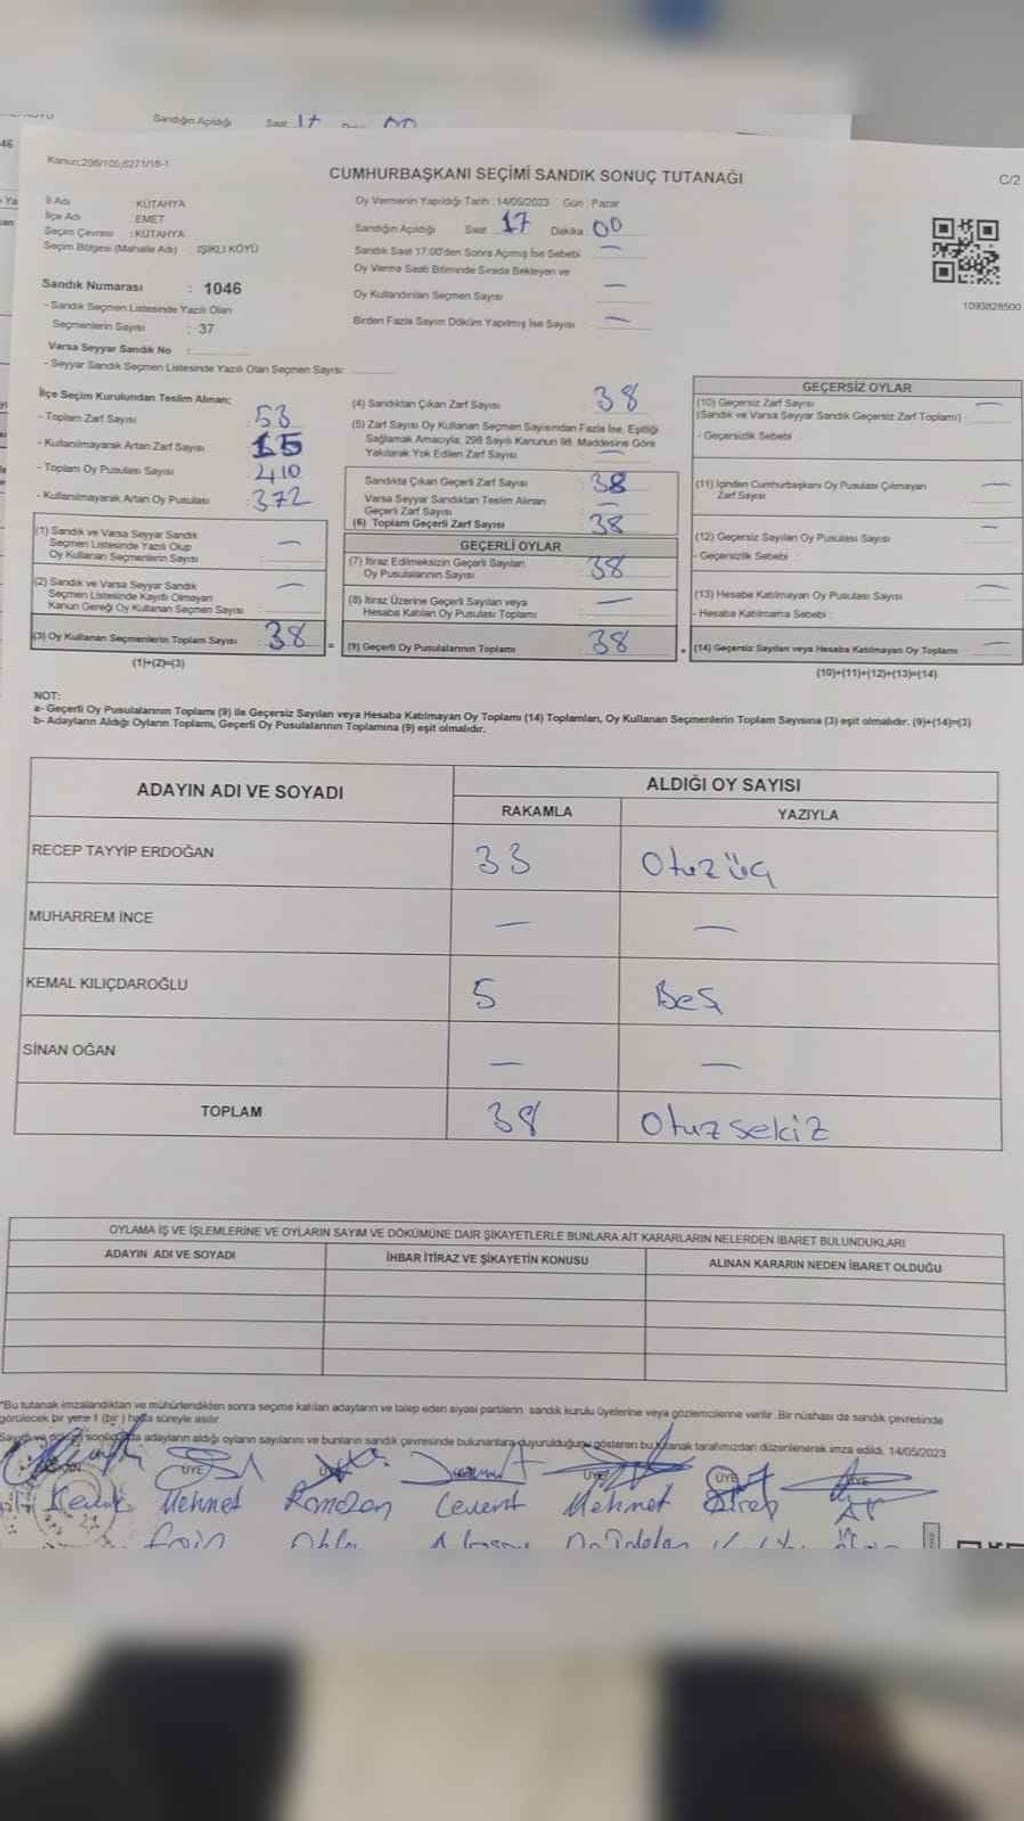 Sandığın Açıldığı Saat 17 00
46
Kanun:298/105,6271/18-1
CUMHURBAŞKANI SEÇİMİ SANDIK SONUÇ TUTANAĞI
C/2
İl Adı : KÜTAHYA
İlçe Adı : EMET
Seçim Çevresi : KÜTAHYA
Seçim Bölgesi (Mahalle Adı) : IŞIKLI KÖYÜ
Sandık Numarası : 1046
- Sandık Seçmen Listesinde Yazılı Olan
Seçmenlerin Sayısı : 37
Varsa Seyyar Sandık No :
- Seyyar Sandık Seçmen Listesinde Yazılı Olan Seçmen Sayısı:
Oy Vermenin Yapıldığı Tarih : 14/05/2023 Gün : Pazar
Sandığın Açıldığı Saat 17 Dakika 00
Sandık Saat 17:00'den Sonra Açılmış İse Sebebi —
Oy Verme Saati Bitiminde Sırada Bekleyen ve
Oy Kullandırılan Seçmen Sayısı —
Birden Fazla Sayım Döküm Yapılmış İse Sayısı —
1093828500
İlçe Seçim Kurulundan Teslim Alınan;
- Toplam Zarf Sayısı : 53
- Kullanılmayarak Artan Zarf Sayısı : 15
- Toplam Oy Pusulası Sayısı : 410
- Kullanılmayarak Artan Oy Pusulası : 372
(1) Sandık ve Varsa Seyyar Sandık
Seçmen Listesinde Yazılı Olup
Oy Kullanan Seçmenlerin Sayısı —
(2) Sandık ve Varsa Seyyar Sandık
Seçmen Listesinde Kayıtlı Olmayan
Kanun Gereği Oy Kullanan Seçmen Sayısı —
(3) Oy Kullanan Seçmenlerin Toplam Sayısı : 38
(1)+(2)=(3)
(4) Sandıktan Çıkan Zarf Sayısı : 38
(5) Zarf Sayısı Oy Kullanan Seçmen Sayısından Fazla İse, Eşitliği
Sağlamak Amacıyla; 298 Sayılı Kanunun 98. Maddesine Göre
Yakılarak Yok Edilen Zarf Sayısı —
Sandıkta Çıkan Geçerli Zarf Sayısı : 38
Varsa Seyyar Sandıktan Teslim Alınan
Geçerli Zarf Sayısı —
(6) Toplam Geçerli Zarf Sayısı : 38
=
GEÇERLİ OYLAR
(7) İtiraz Edilmeksizin Geçerli Sayılan
Oy Pusulalarının Sayısı : 38
(8) İtiraz Üzerine Geçerli Sayılan veya
Hesaba Katılan Oy Pusulası Toplamı : —
(9) Geçerli Oy Pusulalarının Toplamı : 38
+
GEÇERSİZ OYLAR
(10) Geçersiz Zarf Sayısı —
(Sandık ve Varsa Seyyar Sandık Geçersiz Zarf Toplamı)
- Geçersizlik Sebebi :
(11) İçinden Cumhurbaşkanı Oy Pusulası Çıkmayan
Zarf Sayısı —
(12) Geçersiz Sayılan Oy Pusulası Sayısı —
- Geçersizlik Sebebi :
(13) Hesaba Katılmayan Oy Pusulası Sayısı —
- Hesaba Katılmama Sebebi :
(14) Geçersiz Sayılan veya Hesaba Katılmayan Oy Toplamı —
(10)+(11)+(12)+(13)=(14)
NOT:
a- Geçerli Oy Pusulalarının Toplamı (9) ile Geçersiz Sayılan veya Hesaba Katılmayan Oy Toplamı (14) Toplamları, Oy Kullanan Seçmenlerin Toplam Sayısına (3) eşit olmalıdır. (9)+(14)=(3)
b- Adayların Aldığı Oyların Toplamı, Geçerli Oy Pusulalarının Toplamına (9) eşit olmalıdır.
ADAYIN ADI VE SOYADI
ALDIĞI OY SAYISI
RAKAMLA YAZIYLA
RECEP TAYYİP ERDOĞAN 33 Otuzüç
MUHARREM İNCE — —
KEMAL KILIÇDAROĞLU 5 Beş
SİNAN OĞAN — —
TOPLAM 38 Otuzsekiz
OYLAMA İŞ VE İŞLEMLERİNE VE OYLARIN SAYIM VE DÖKÜMÜNE DAİR ŞİKAYETLERLE BUNLARA AİT KARARLARIN NELERDEN İBARET BULUNDUKLARI
ADAYIN ADI VE SOYADI İHBAR İTİRAZ VE ŞİKAYETİN KONUSU ALINAN KARARIN NEDEN İBARET OLDUĞU
*Bu tutanak imzalandıktan ve mühürlendikten sonra seçime katılan adayların ve talep eden siyasi partilerin sandık kurulu üyelerine veya gözlemcilerine verilir. Bir nüshası da sandık çevresinde
görülecek bir yere 1 (bir) hafta süreyle asılır.
adayların aldığı oyların sayılarını ve bunların sandık çevresinde bulunanlara duyurulduğunu gösteren bu tutanak tarafımızdan düzenlenerek imza edildi. 14/05/2023
ÜYE ÜYE ÜYE ÜYE
Mehmet Ramazan Levent Mehmet